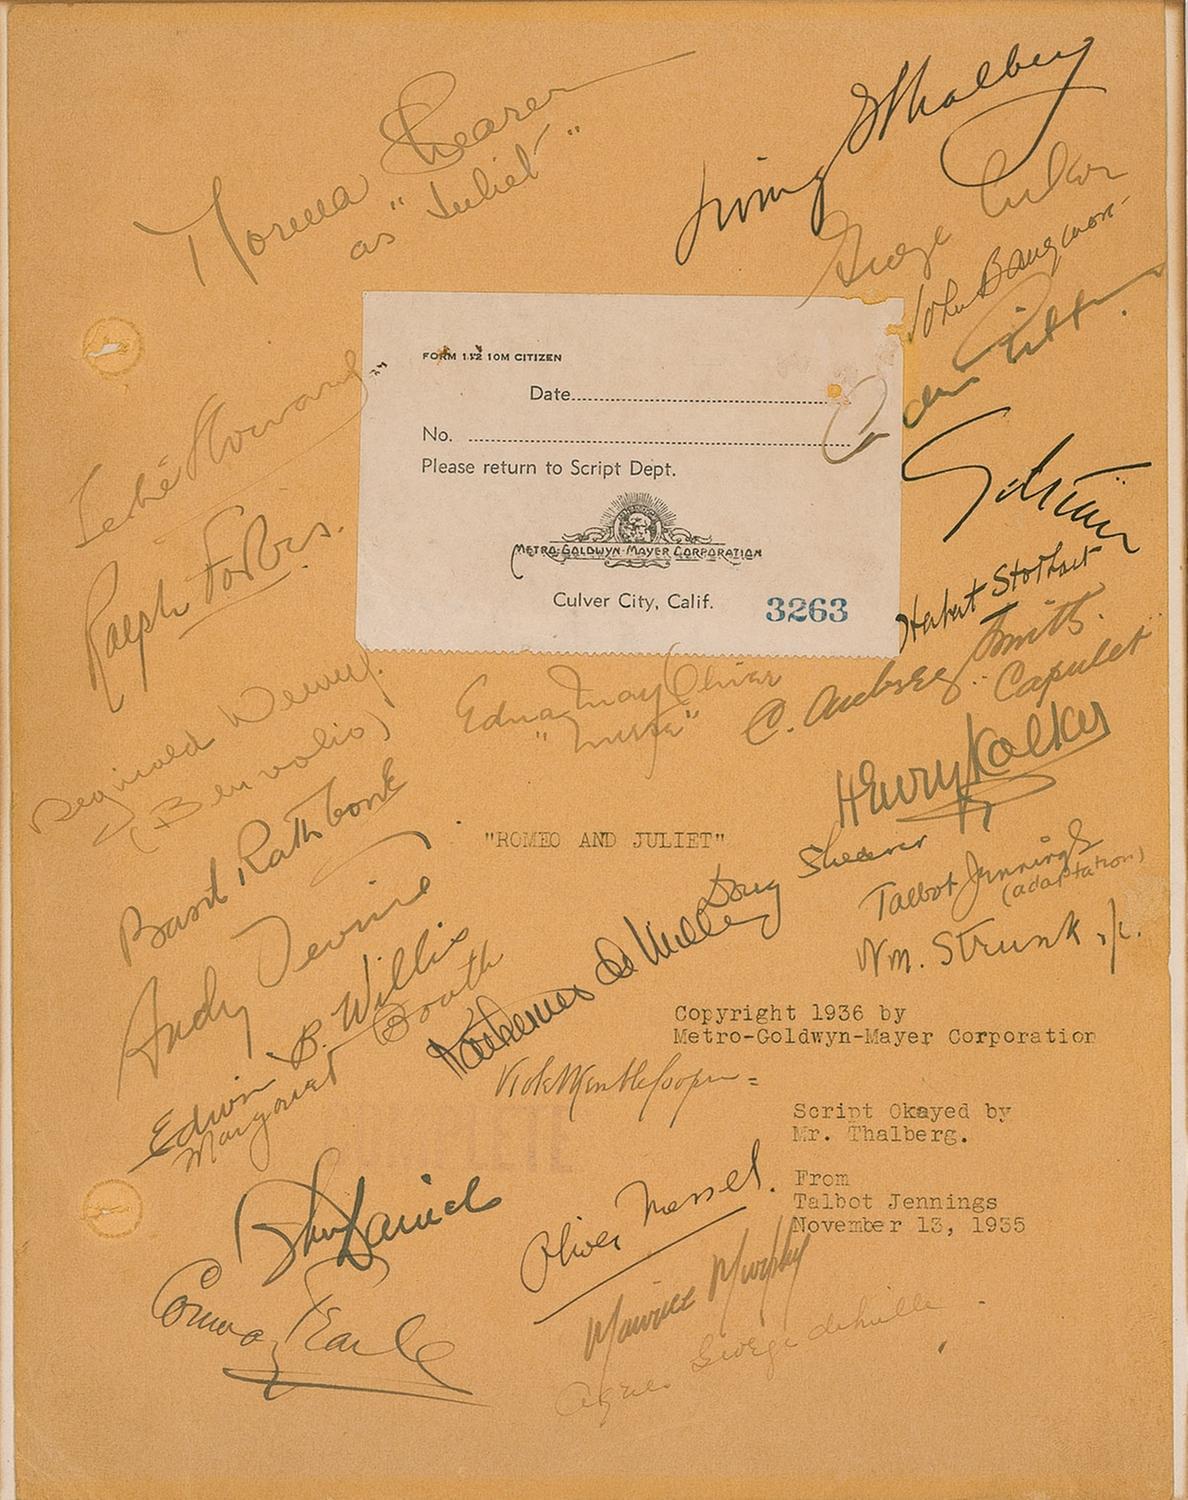 Norma Shearer
as "Juliet"
Irving Thalberg
George Cukor
FORM 112 10M CITIZEN
Date
No.
Please return to Script Dept.
METRO-GOLDWYN-MAYER CORPORATION
Culver City, Calif.
3263
Leslie Howard
Ralph Forbes.
Herbert Stothart
C. Aubrey Smith.
"Capulet"
Edna May Oliver
"Nurse"
Reginald Denny.
(Benvolio)
Henry Kolker
Basil Rathbone
"ROMEO AND JULIET"
Doug Shearer
Talbot Jennings
(adaptation)
Andy Devine
Wm. Strunk jr.
Edwin B. Willis
Margaret Booth
Katherine De Mille
Copyright 1936 by
Metro-Goldwyn-Mayer Corporation
Script Okayed by
Mr. Thalberg.
From
Talbot Jennings
November 13, 1935
Oliver Messel.
Conway Tearle
Maurice Murphy
Agnes George deMille